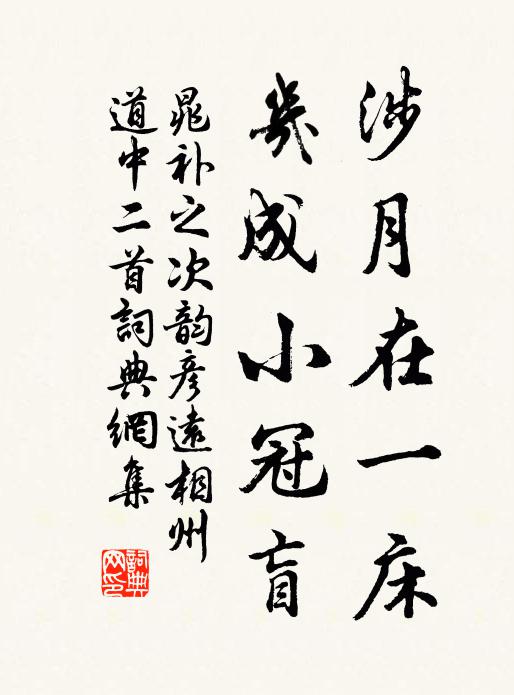 涉月在一床
幾成小冠盲
晁补之次韵彦遠相州
道中二首詞典網集
詞典网印